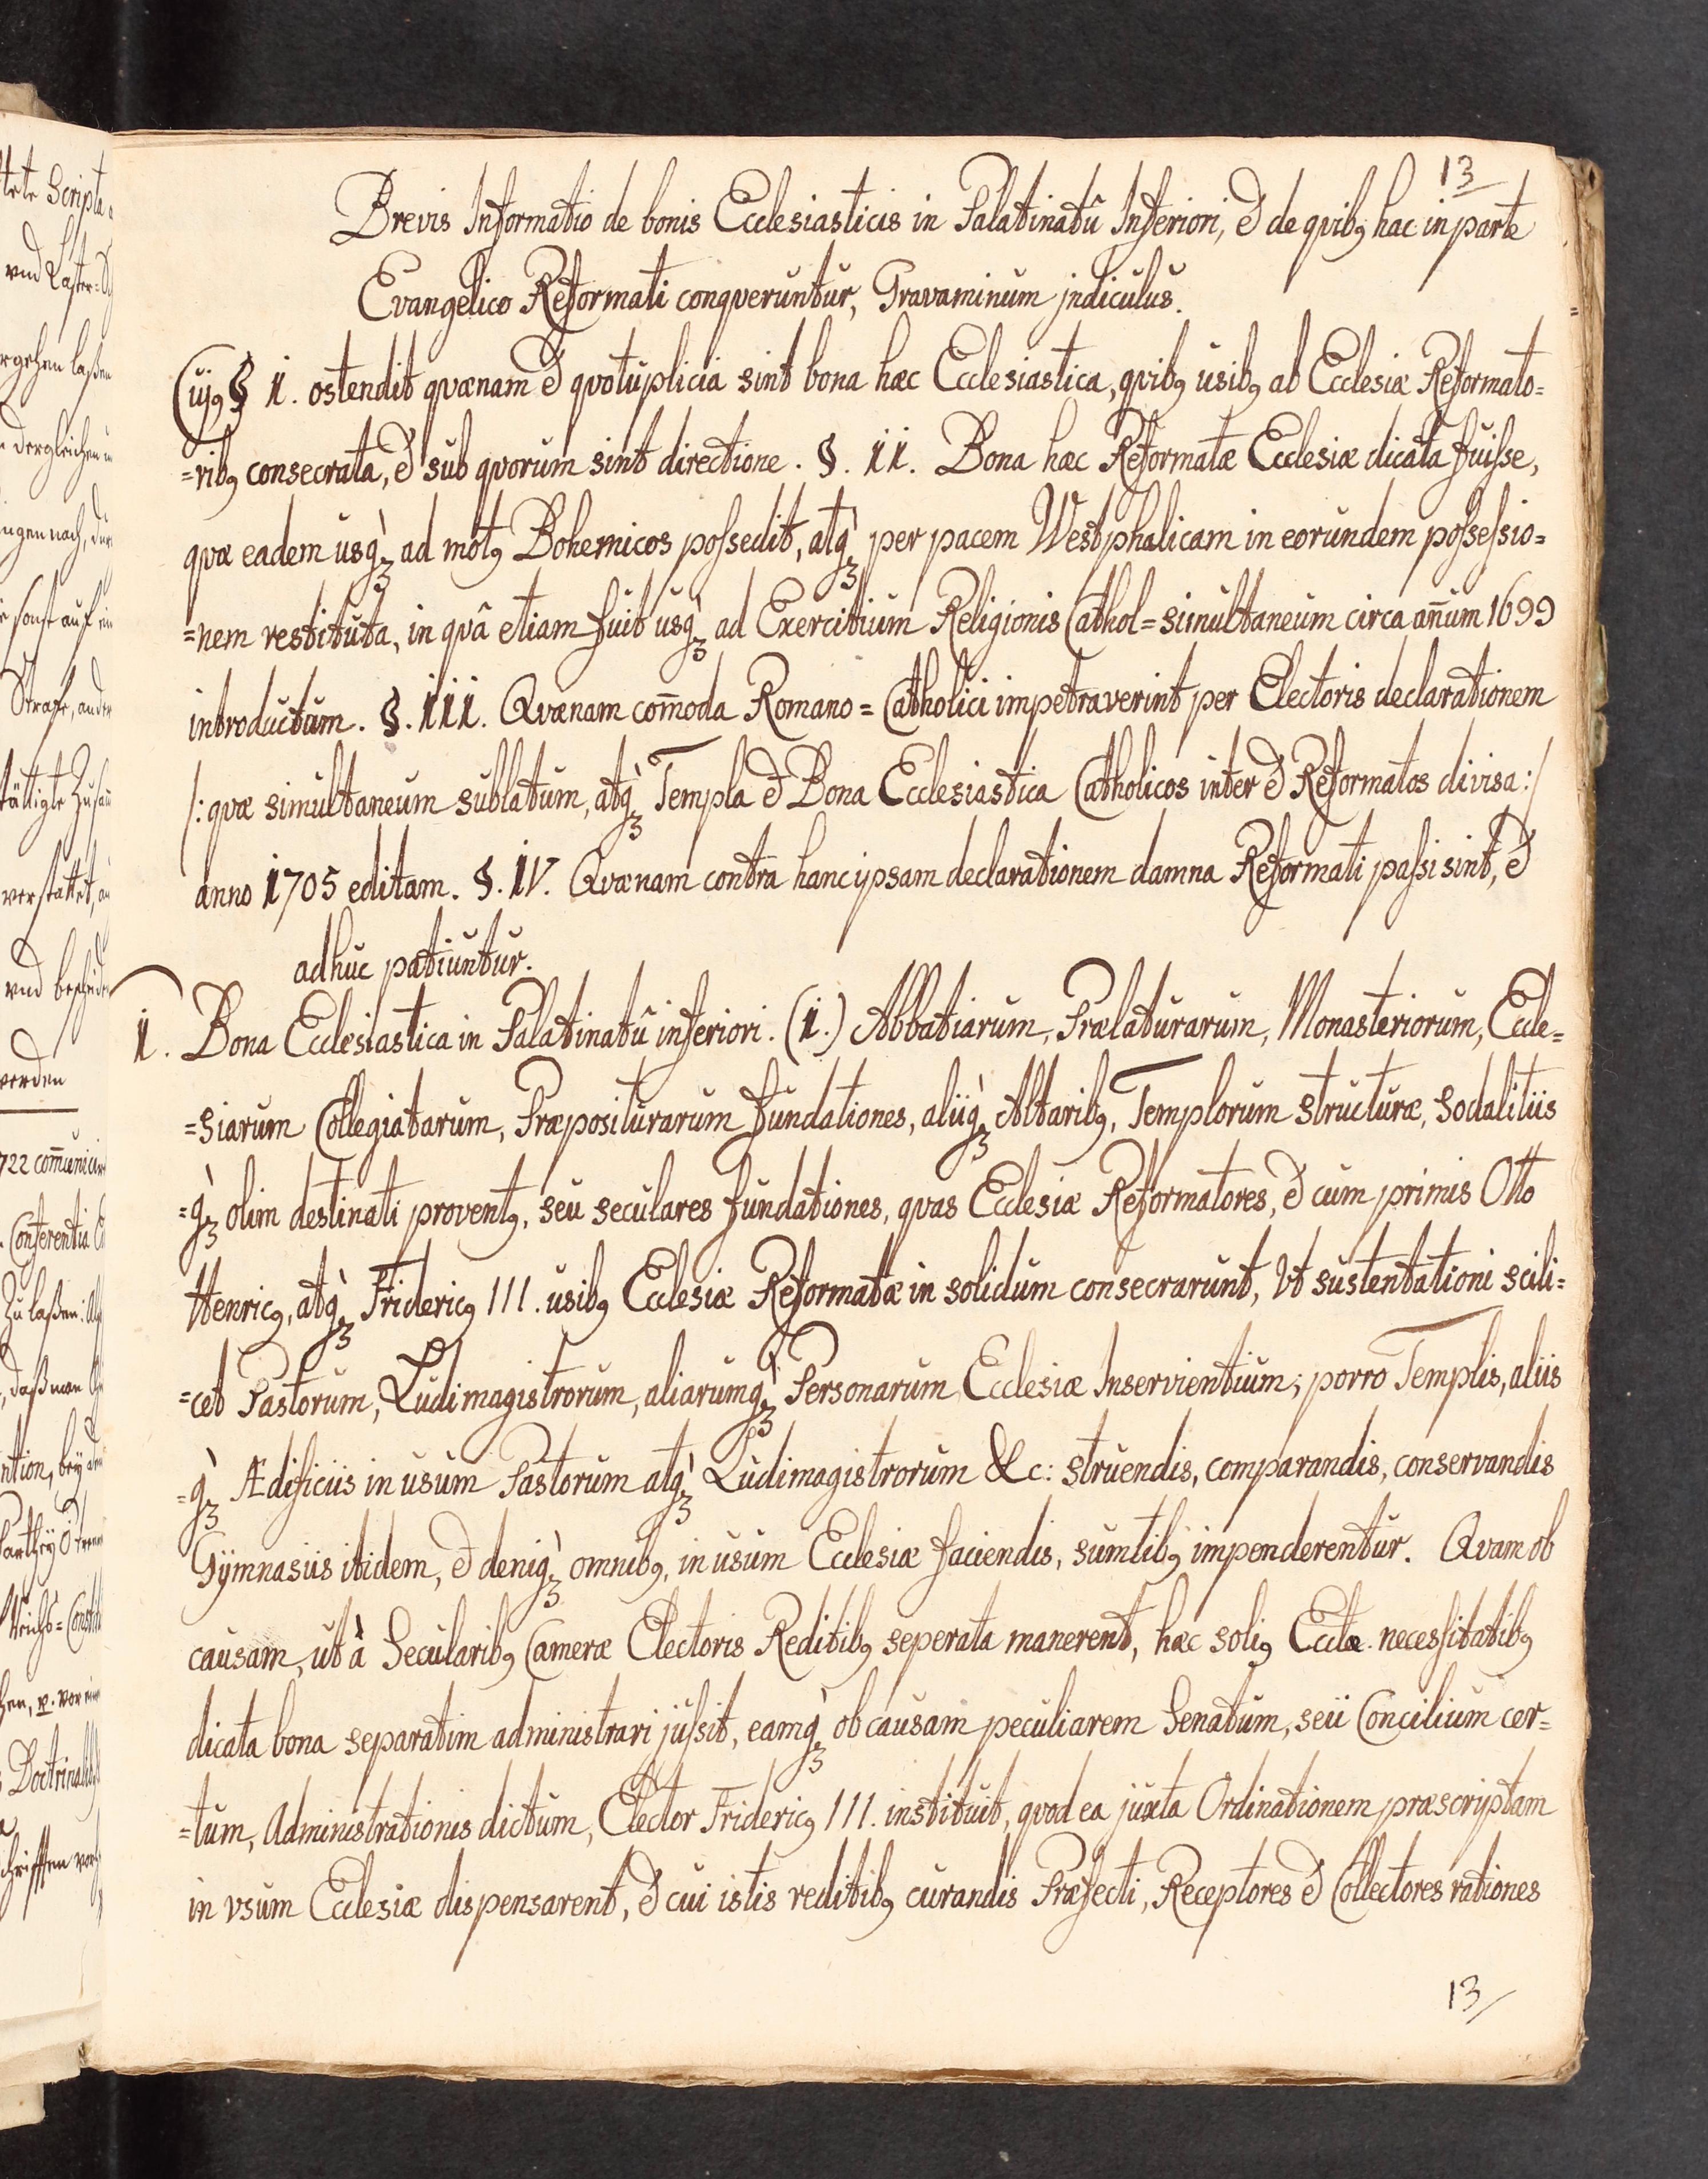 13
Brevis Informatio de bonis Ecclesiasticis in Palatinatû Inferiori, & de qvibꝯ hac in parte
Evangelico Reformati conqveruntur, Gravaminum jndiculus.
Cujꝯ § I. ostendit qvænam & qvotuplicia sint bona hæc Ecclesiastica, qvibꝯ usibꝯ ab Ecclesiæ Reformato=
=ribꝯ consecrata, & sub qvorum sint directione. §. II. Bona hæc Reformatæ Ecclesiæ dicata fuisse,
qvæ eadem usqꝫ ad motꝯ Bohemicos possedit, atqꝫ per pacem Westphalicam in eorundem possessio=
=nem restituta, in qvâ etiam fuit usqꝫ ad Exercitium Religionis Cathol=simultaneum circa añum 1699
introductum. §. III. Qvænam com̅oda Romano=Catholici impetraverint per Electoris declarationem
/: qvæ simultaneum sublatum, atqꝫ Templa & Bona Ecclesiastica Catholicos inter & Reformatos divisa :/
anno 1705 editam. §. IV. Qvænam contra hanc ipsam declarationem damna Reformati passi sint, &
adhuc patiuntur.
I. Bona Ecclesiastica in Palatinatû inferiori. (1.) Abbatiarum, Prælaturarum, Monasteriorum, Eccle=
=siarum Collegiatarum, Præpositurarum fundationes, aliiqꝫ Altaribꝯ, Templorum structuræ, sodalitiis
=qꝫ olim destinati proventꝯ, seu seculares fundationes, qvas Ecclesiæ Reformatores, & cum primis Otto
Henricꝯ, atqꝫ Fridericꝯ III. usibꝯ Ecclesiæ Reformatæ in solidum consecrarunt, Vt sustentationi scili=
=cet Pastorum, Ludimagistrorum, aliarumqꝫ Personarum Ecclesiæ Inservientium; porro Templis, aliis
=qꝫ Ædificiis in usum Pastorum atqꝫ Ludimagistrorum &c: struendis, comparandis, conservandis
Gymnasiis itidem, & deniqꝫ omnibꝯ, in usum Ecclesiæ faciendis, sumtibꝯ impenderentur. Qvam ob
causam, ut à Secularibꝯ Cameræ Electoris Reditibꝯ seperata manerent, hæc soliꝯ Ecclæ necessitatibꝯ
dicata bona separatim administrari jussit, eamqꝫ ob causam peculiarem Senatum, seu Concilium cer=
=tum, Administrationis dictum, Elector Fridericꝯ III. instituit, qvod ea juxta Ordinationem præscriptam
in vsum Ecclesiæ dispensarent, & cui istis reditibꝯ curandis Præfecti, Receptores & Collectores rationes
13